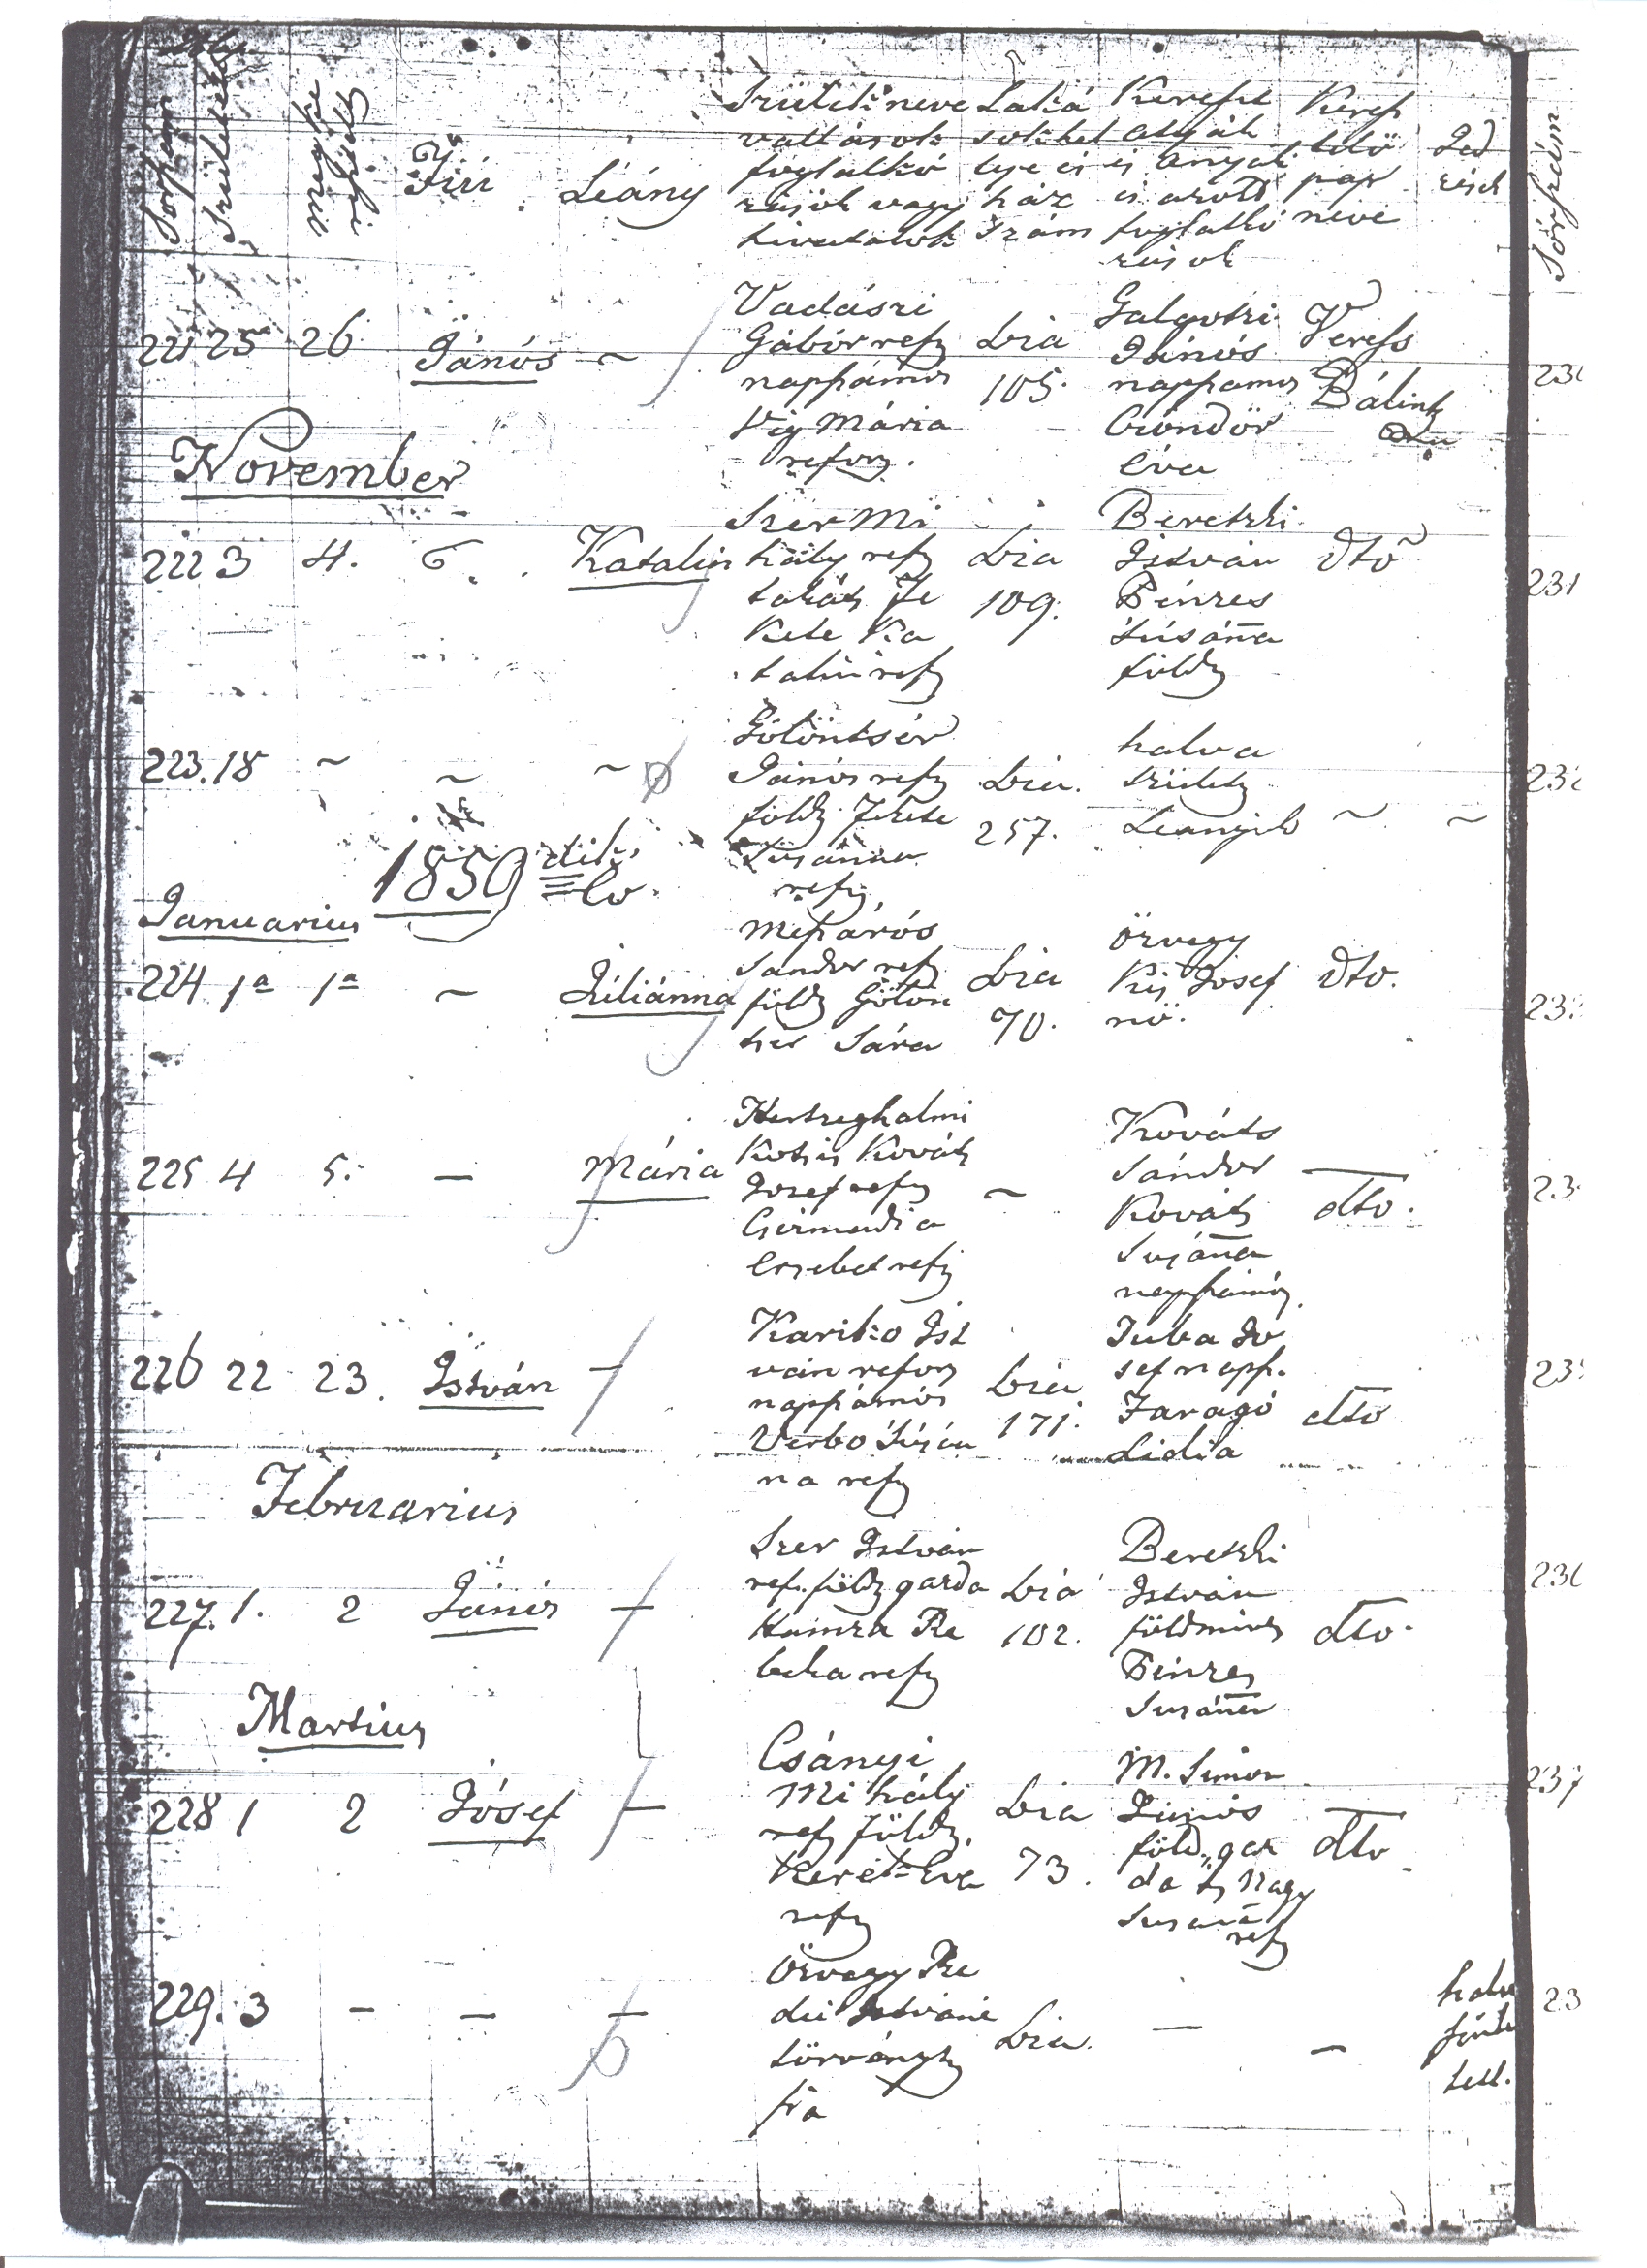 Sorszám
Születés
Keresztelés
Fiú
Leány
Szülék neve
vallások
foglalko
zások vagy
hivatalok
Laká
sok hel
lye és
ház
szám
Kereszt
atyák
és anyák
és azok
foglalko
zások
Keresz
telő
pap
neve
Jed
zések
Sorszám
221 25 26 János ~
Vadászi
Gábor ref
napszámos
Vig Mária
reform.
Bia
105.
Galgotzi
János
napszamos
Göndör
Éva
Veress
Bálint
230
November
222 3 4. Katalin
Szer Mi
hály ref
takáts Fe
kete Ka
talin ref
Bia
109.
Beretzki
István
Pénzes
Súsána
földm
dto
231
223. 18 ~ ~ ~
Gölöntsér
János ref
földm Fekete
Susánna
ref
Bia.
257.
halva
születt
Leanyik ~ ~
232
1859 dik
Januarius
224 1a 1a ~ Juliánna
Mészáros
Sandor ref
földm Gölön
tsér Sára
Bia
70.
özvegy
Kis Josef
nö.
dto.
233
225 4 5. — Mária
Hertzeghalmi
Kotsis Kováts
Josef ref
Ersebet ref
~
Kováts
Sándor
Kováts
Susána
napszámos
dto.
23
226 22 23. István —
Kariko Ist
ván reform
napszámos
Verbo Susán
na ref
Bia
171.
Juba Jo
sef napsz.
Faragó
Lidia
dto
235
Februarius
227. 1. 2 János —
Szer István
ref. földm gazda
Hamza Re
beka ref
Bia
102.
Beretzki
István
földmives
Pénzes
Susána
dto.
236
Martius
228 1 2 Jósef —
Csányi
Mihály
ref földm.
Kerét Eva
ref
Bia
73.
M. Simon
János
föld. gaz
da Nagy
Susana
ref
dto
237
229. 3 — — —
özvegy Re
dei Istváné
törvényt
fia
Bia.
—
—
halva
szüle
tett.
23